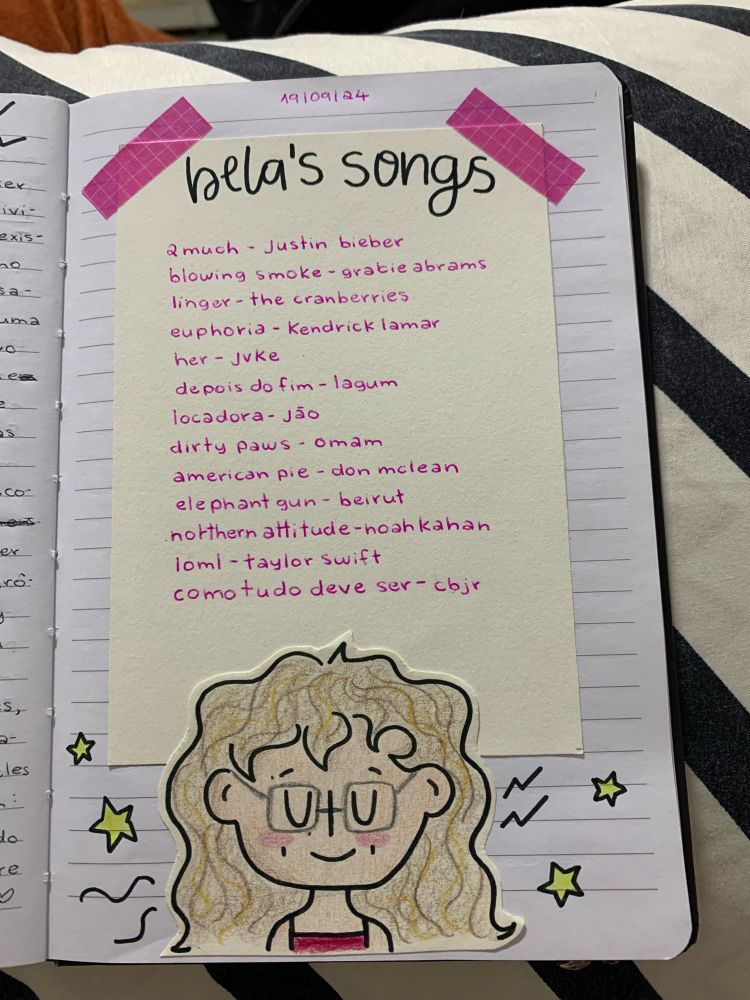 er
ivi-
exis-
no
sa-
uma
vo
e
as
co-
er
rô-
y
a
s,
a-
cles
:
do
re
19/09/24
bela's songs
2 much - Justin bieber
blowing smoke - gracie abrams
linger - the cranberries
euphoria - Kendrick lamar
her - JVKE
depois do fim - lagum
locadora - Jão
dirty paws - omam
american pie - don mclean
elephant gun - beirut
northern attitude - noah kahan
loml - taylor swift
como tudo deve ser - cbjr